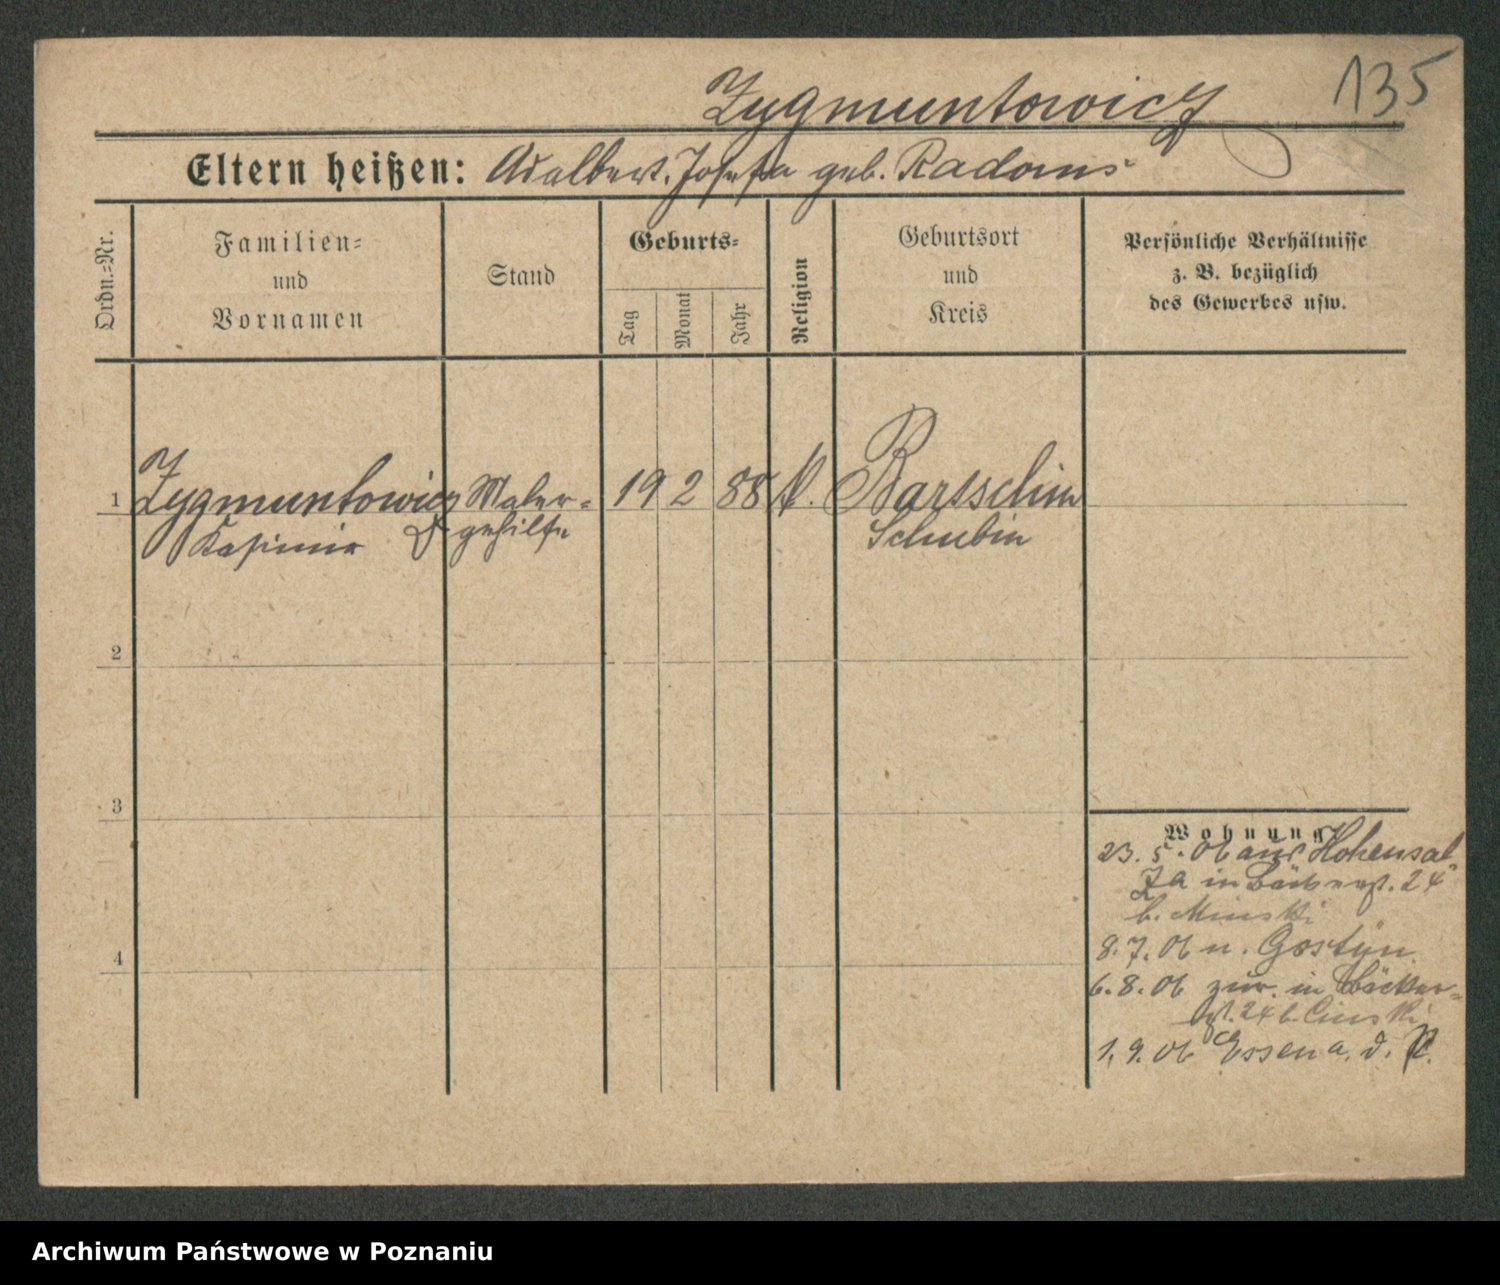 135
Zygmuntowicz
Eltern heißen: Adalbert. Josefa geb. Radoms
Ordn.=Nr.
Familien=
und
Vornamen
Stand
Geburts=
Tag
Monat
Jahr
Religion
Geburtsort
und
Kreis
Persönliche Verhältnisse
z. B. bezüglich
des Gewerbes usw.
1 Zygmuntowicz Maler= 19 2 88 k. Bartschin
Kasimir gehilfe Schubin
2
3
4
Wohnung
23. 5. 06 aus Hohensal
za in Bäckerst. 24
b. Minski
8. 7. 06 n. Gostyn.
6. 8. 06 zur. in Bäcker=
st. 24 b.
1. 9. 06 Essen a. d. R.
Archiwum Państwowe w Poznaniu